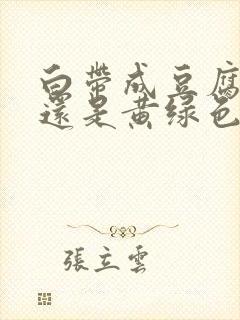 白带成豆腐
还是黄绿色
張立雲